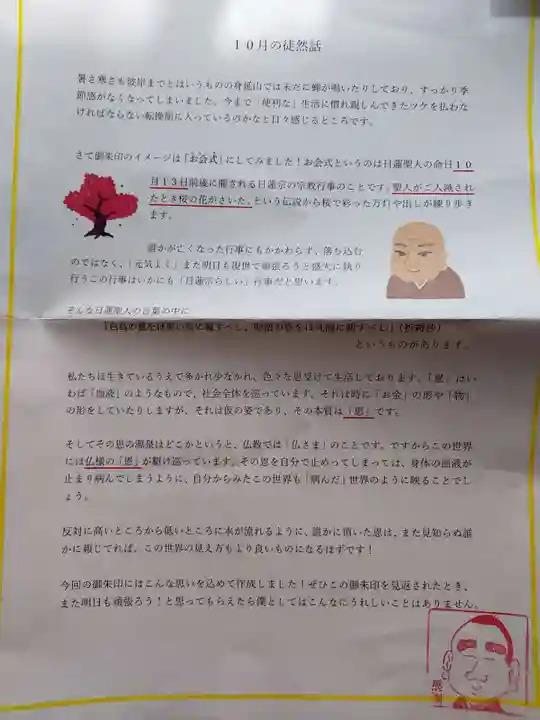 10月の徒然話
暑さ寒さも彼岸までとはいうものの身延山では未だに蝉が鳴いたりしており、すっかり季
節感がなくなってしまいました。今まで「便利な」生活に慣れ親しんできたツケを払わな
ければならない転換期に入っているのかなと日々感じるところです。
さて御朱印のイメージは「お会式」にしてみました！お会式というのは日蓮聖人の命日10
月13日前後に催される日蓮宗の宗教行事のことです。聖人がご入滅され
たとき桜の花がさいた、という伝説から桜で彩った万灯や出しが練り歩き
ます。
誰かが亡くなった行事にもかかわらず、落ち込む
のではなく、「元気よく」また明日も現世で頑張ろうと盛大に執り
行うこの行事はいかにも「日蓮宗らしい」行事だと思います。
そんな日蓮聖人の言葉の中に
というものがあります。
私たちは生きているうえで多かれ少なかれ、色々な恩受けて生活しております。「恩」はい
わば「血液」のようなもので、社会全体を巡っています。それは時に「お金」の形や「物」
の形をしていたりしますが、それは仮の姿であり、その本質は「恩」です。
そしてその恩の源泉はどこかというと、仏教では「仏さま」のことです。ですからこの世界
には仏様の「恩」が駆け巡っています。その恩を自分で止めてしまっては、身体の血液が
止まり病んでしまうように、自分からみたこの世界も「病んだ」世界のように映ることでし
ょう。
反対に高いところから低いところに水が流れるように、誰かに頂いた恩は、また見知らぬ誰
かに報じてれば、この世界の見え方もより良いものになるはずです！
今回の御朱印にはこんな思いを込めて作成しました！ぜひこの御朱印を見返されたとき、
また明日も頑張ろう！と思ってもらえたら僕としてはこんなにうれしいことはありません。